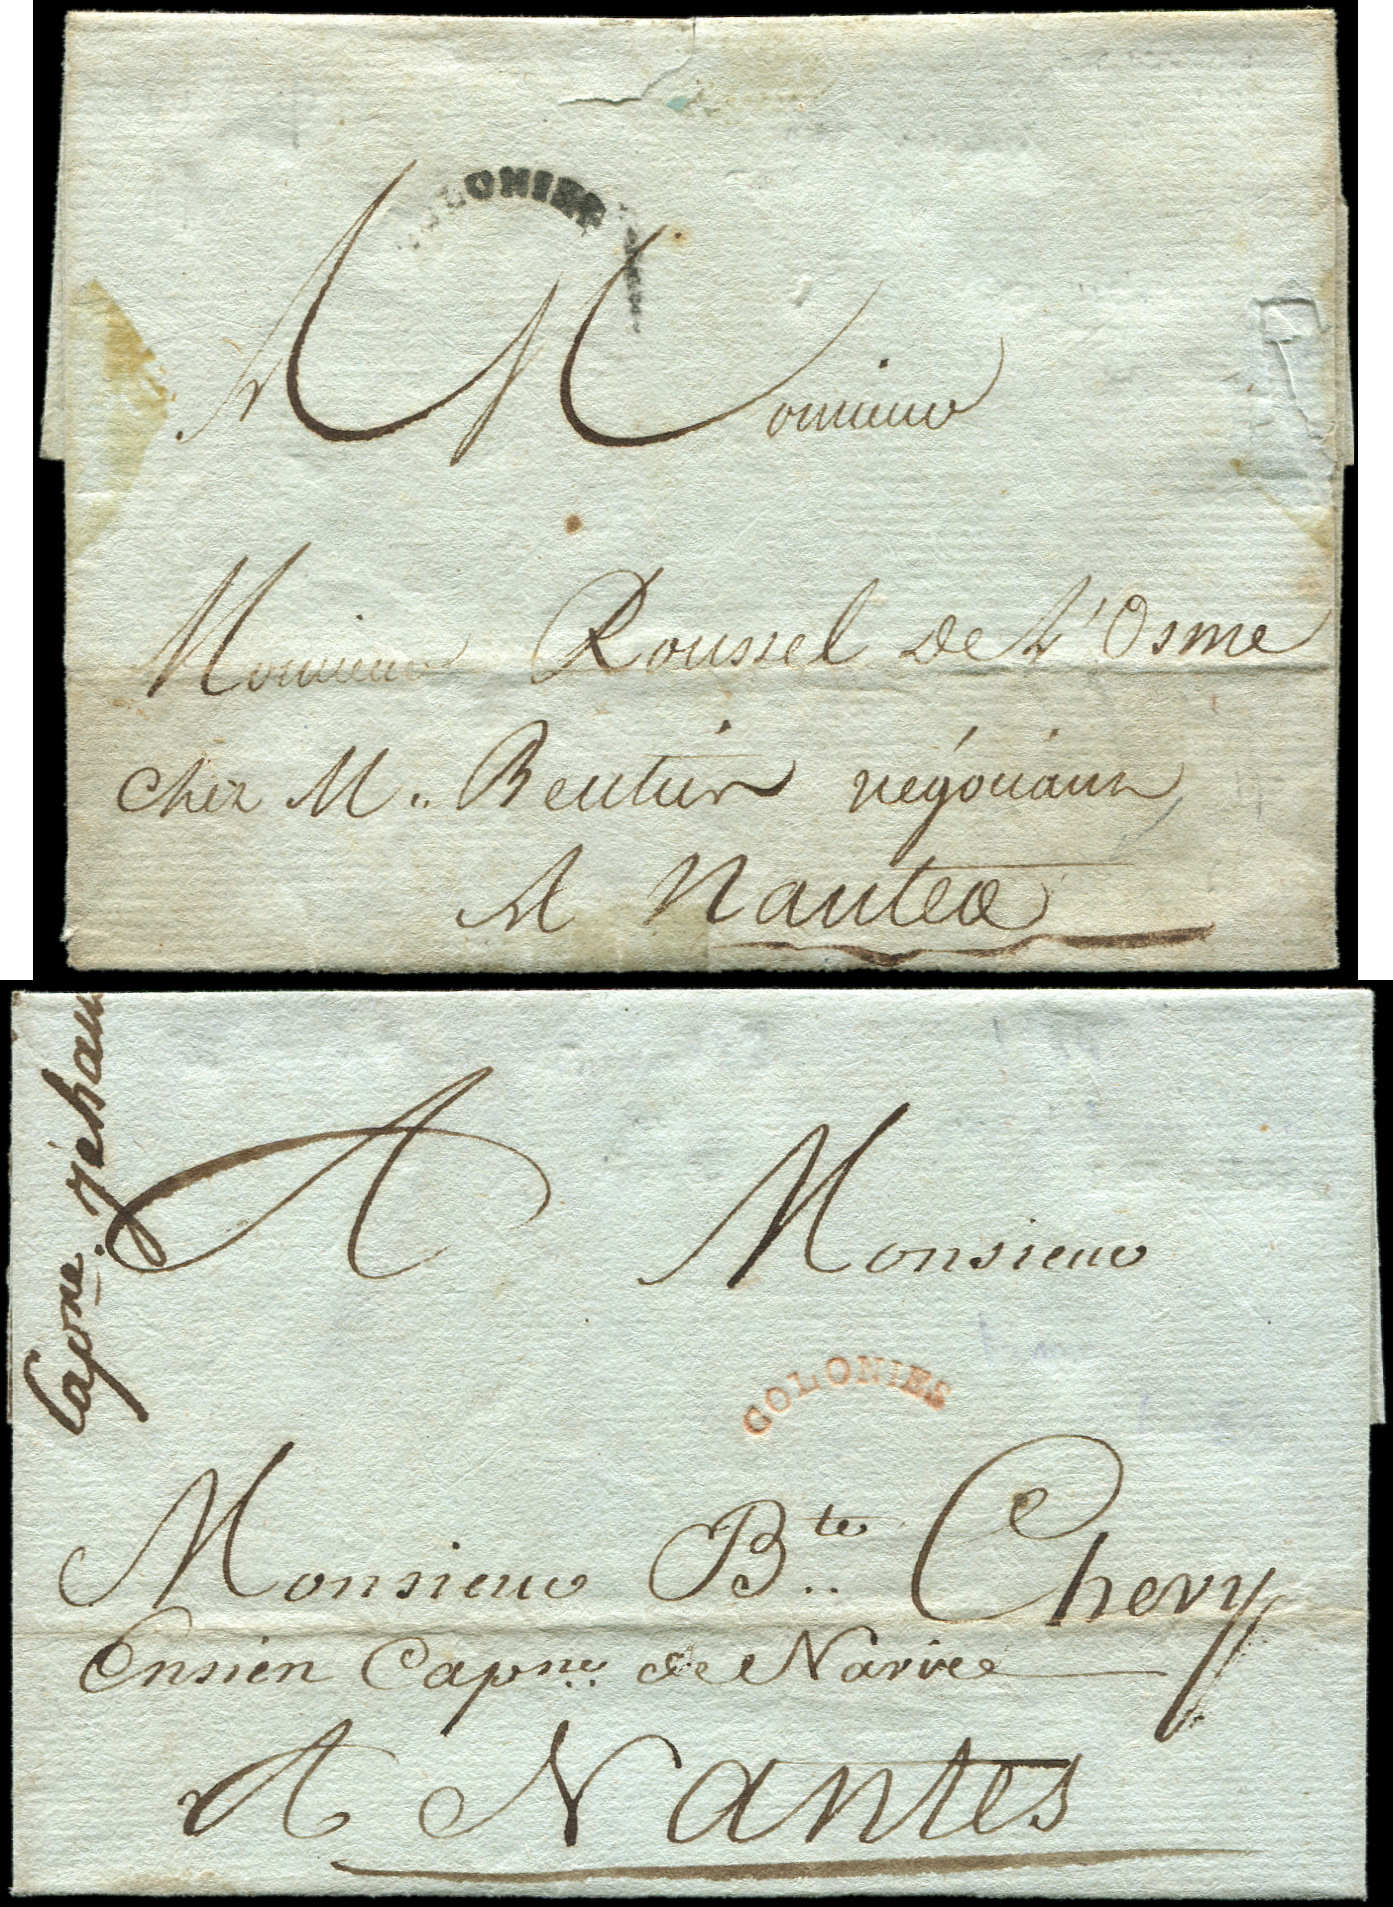 COLONIES
A Monsieur
Monsieur Roussel de L'Osme
chez M.. Beutier négociant
A Nantes
Capne. Jehan
A Monsieur
COLONIES
Monsieur Bte.. Chevy
Ensien Capne.. de Navire
A Nantes